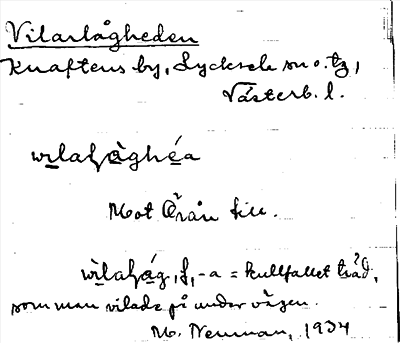 Vilarlågheden
Knaftens by, Lycksele sn o. tg,
Västerb. l.
wilaɧàghéa
Mot Örån till.
wìlaɧág, f, -a = kullfallet träd,
som man vilade på under vägen.
M. Neuman, 1934